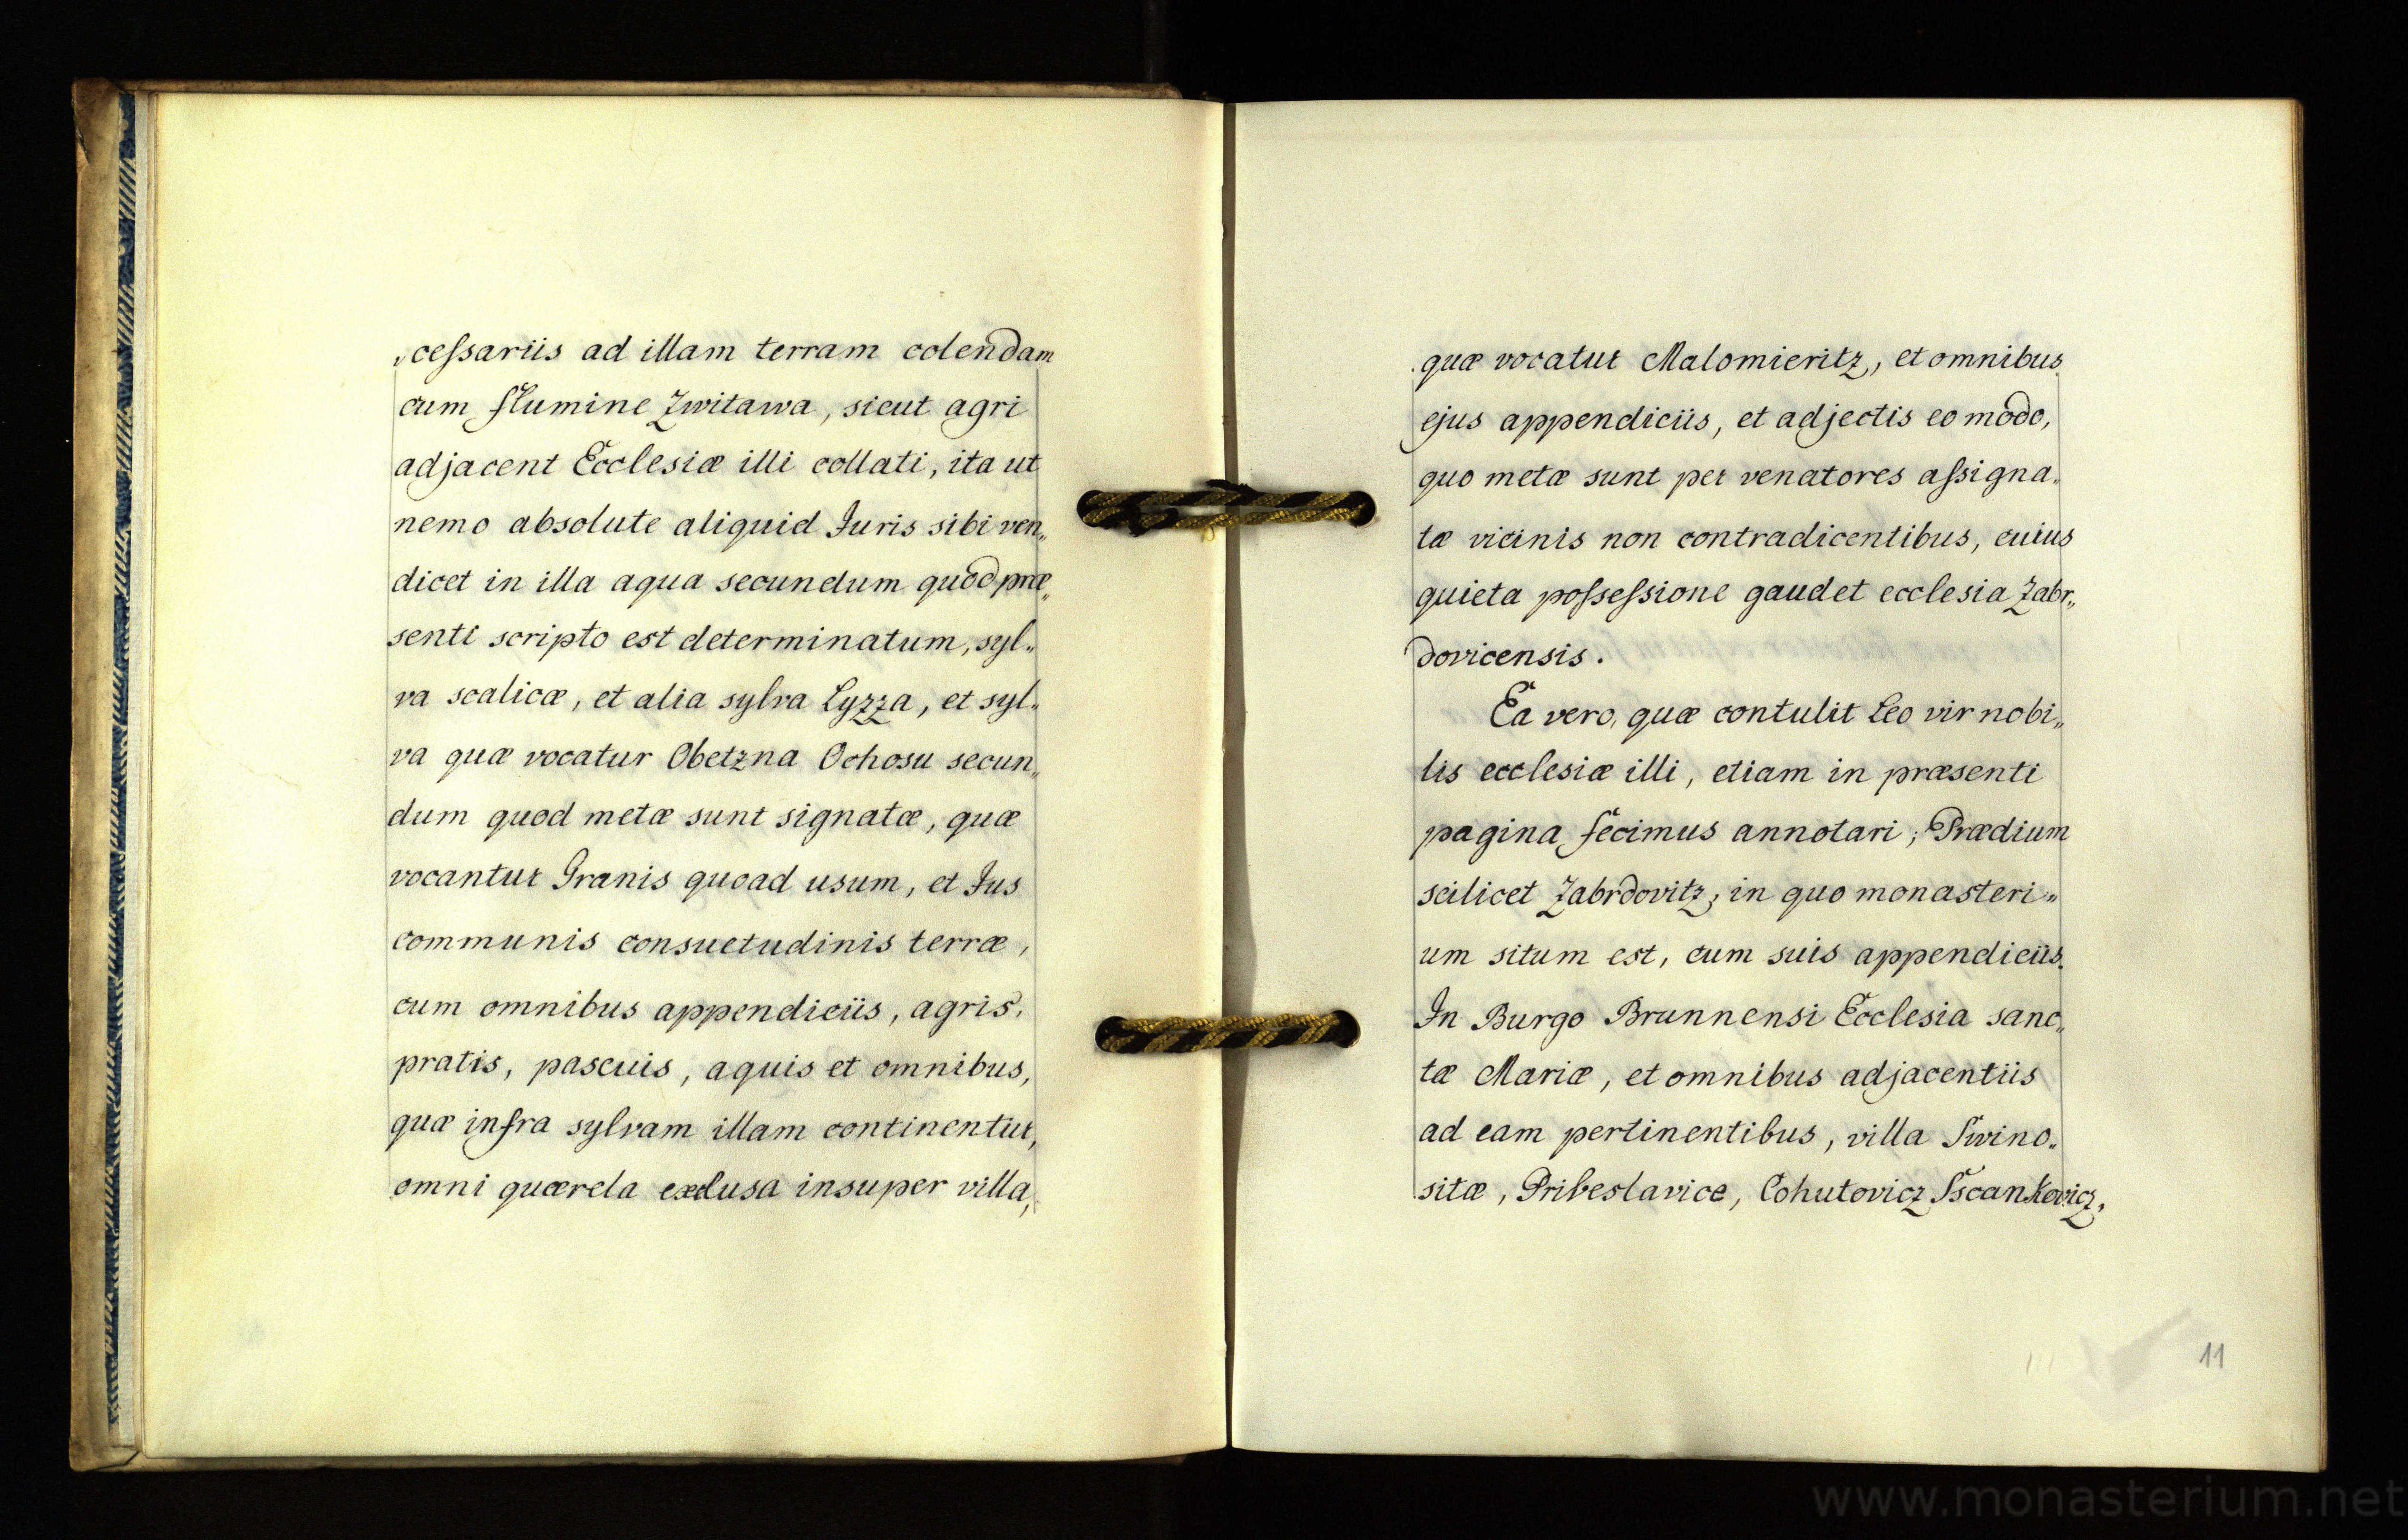 „cessariis ad illam terram colendam
cum flumine Zwitawa, sicut agri
adjacent Ecclesiæ illi collati, ita ut
nemo absolute aliquid Juris sibi ven„
dicet in illa aqua secundum quod præ„
senti scripto est determinatum, syl„
va scalicæ, et alia sylva Lyzza, et syl„
va quæ vocatur Obetzna Ochosu secun„
dum quod metæ sunt signatæ, quæ
vocantur Granis quoad usum, et Jus
communis consuetudinis terræ,
cum omnibus appendiciis, agris,
pratis, pascuis, aquis et omnibus,
quæ infra sylvam illam continentur,
omni quærela exclusa insuper villa,
quæ vocatur Malomieritz, et omnibus
ejus appendiciis, et adjectis eo modo,
quo metæ sunt per venatores assigna„
tæ vicinis non contradicentibus, cuius
quieta possessione gaudet ecclesia Zabr„
dovicensis.
Ea vero, quæ contulit Leo vir nobi„
lis ecclesiæ illi, etiam in præsenti
pagina fecimus annotari; Prædium
scilicet Zabrdovitz, in quo monasteri„
um situm est, cum suis appendiciis.
In Burgo Brunnensi Ecclesia sanc„
tæ Mariæ, et omnibus adjacentiis
ad eam pertinentibus, villa Swino„
sitæ, Pribeslavice, Cohutovicz Sscankovicz,
11
www.monasterium.net